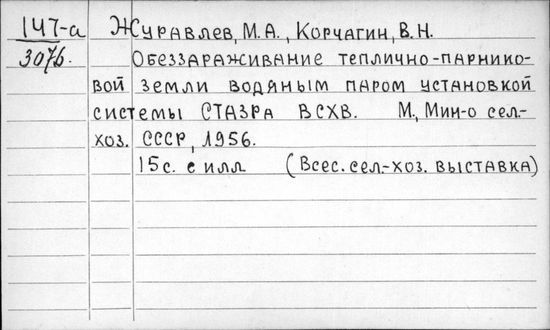 147-а Журавлев, М.А., Корчагин, В.Н.
3076. Обеззараживание теплично-парнико-
вой земли водяным паром установкой
системы СТАЗРА ВСХВ. М., Мин-о сел-
хоз. СССР, 1956.
15с. с илл (Всес. сел.-хоз. выставка)